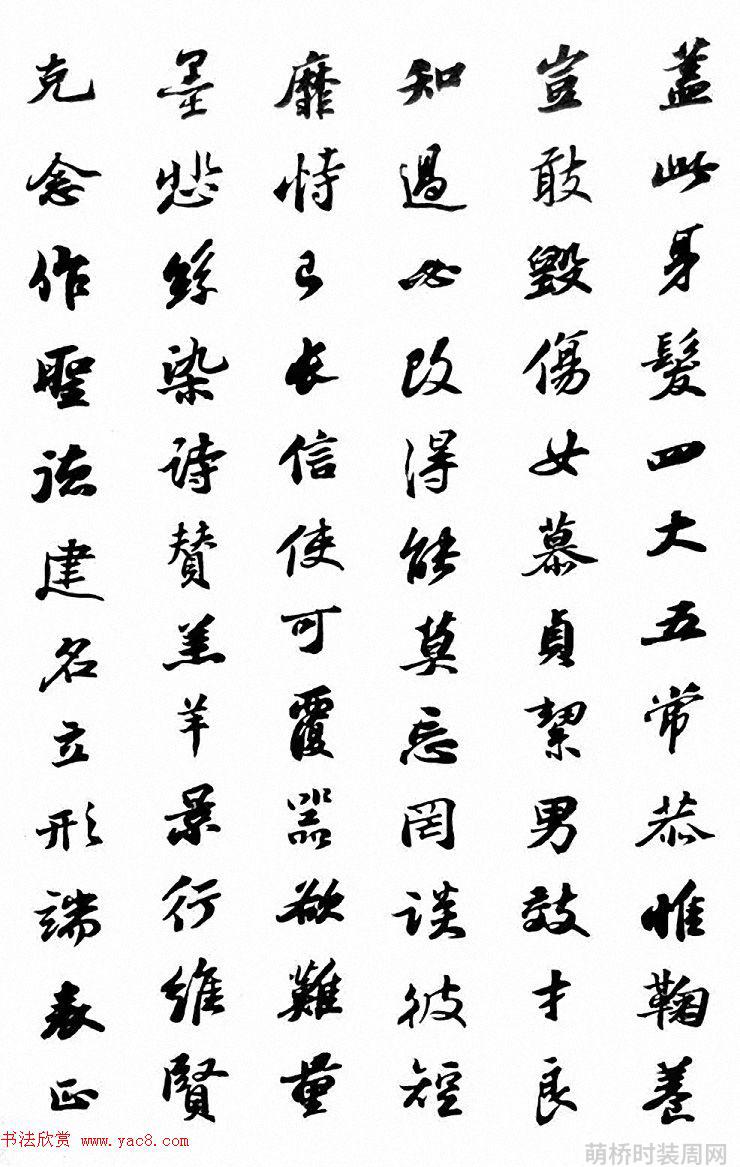 蓋此身髮四大五常恭惟鞠養
豈敢毀傷女慕貞絜男效才良
知過必改得能莫忘罔談彼短
靡恃己長信使可覆器欲難量
墨悲絲染詩贊羔羊景行維賢
克念作聖德建名立形端表正
书法欣赏 www.yac8.com
萌桥时装周网